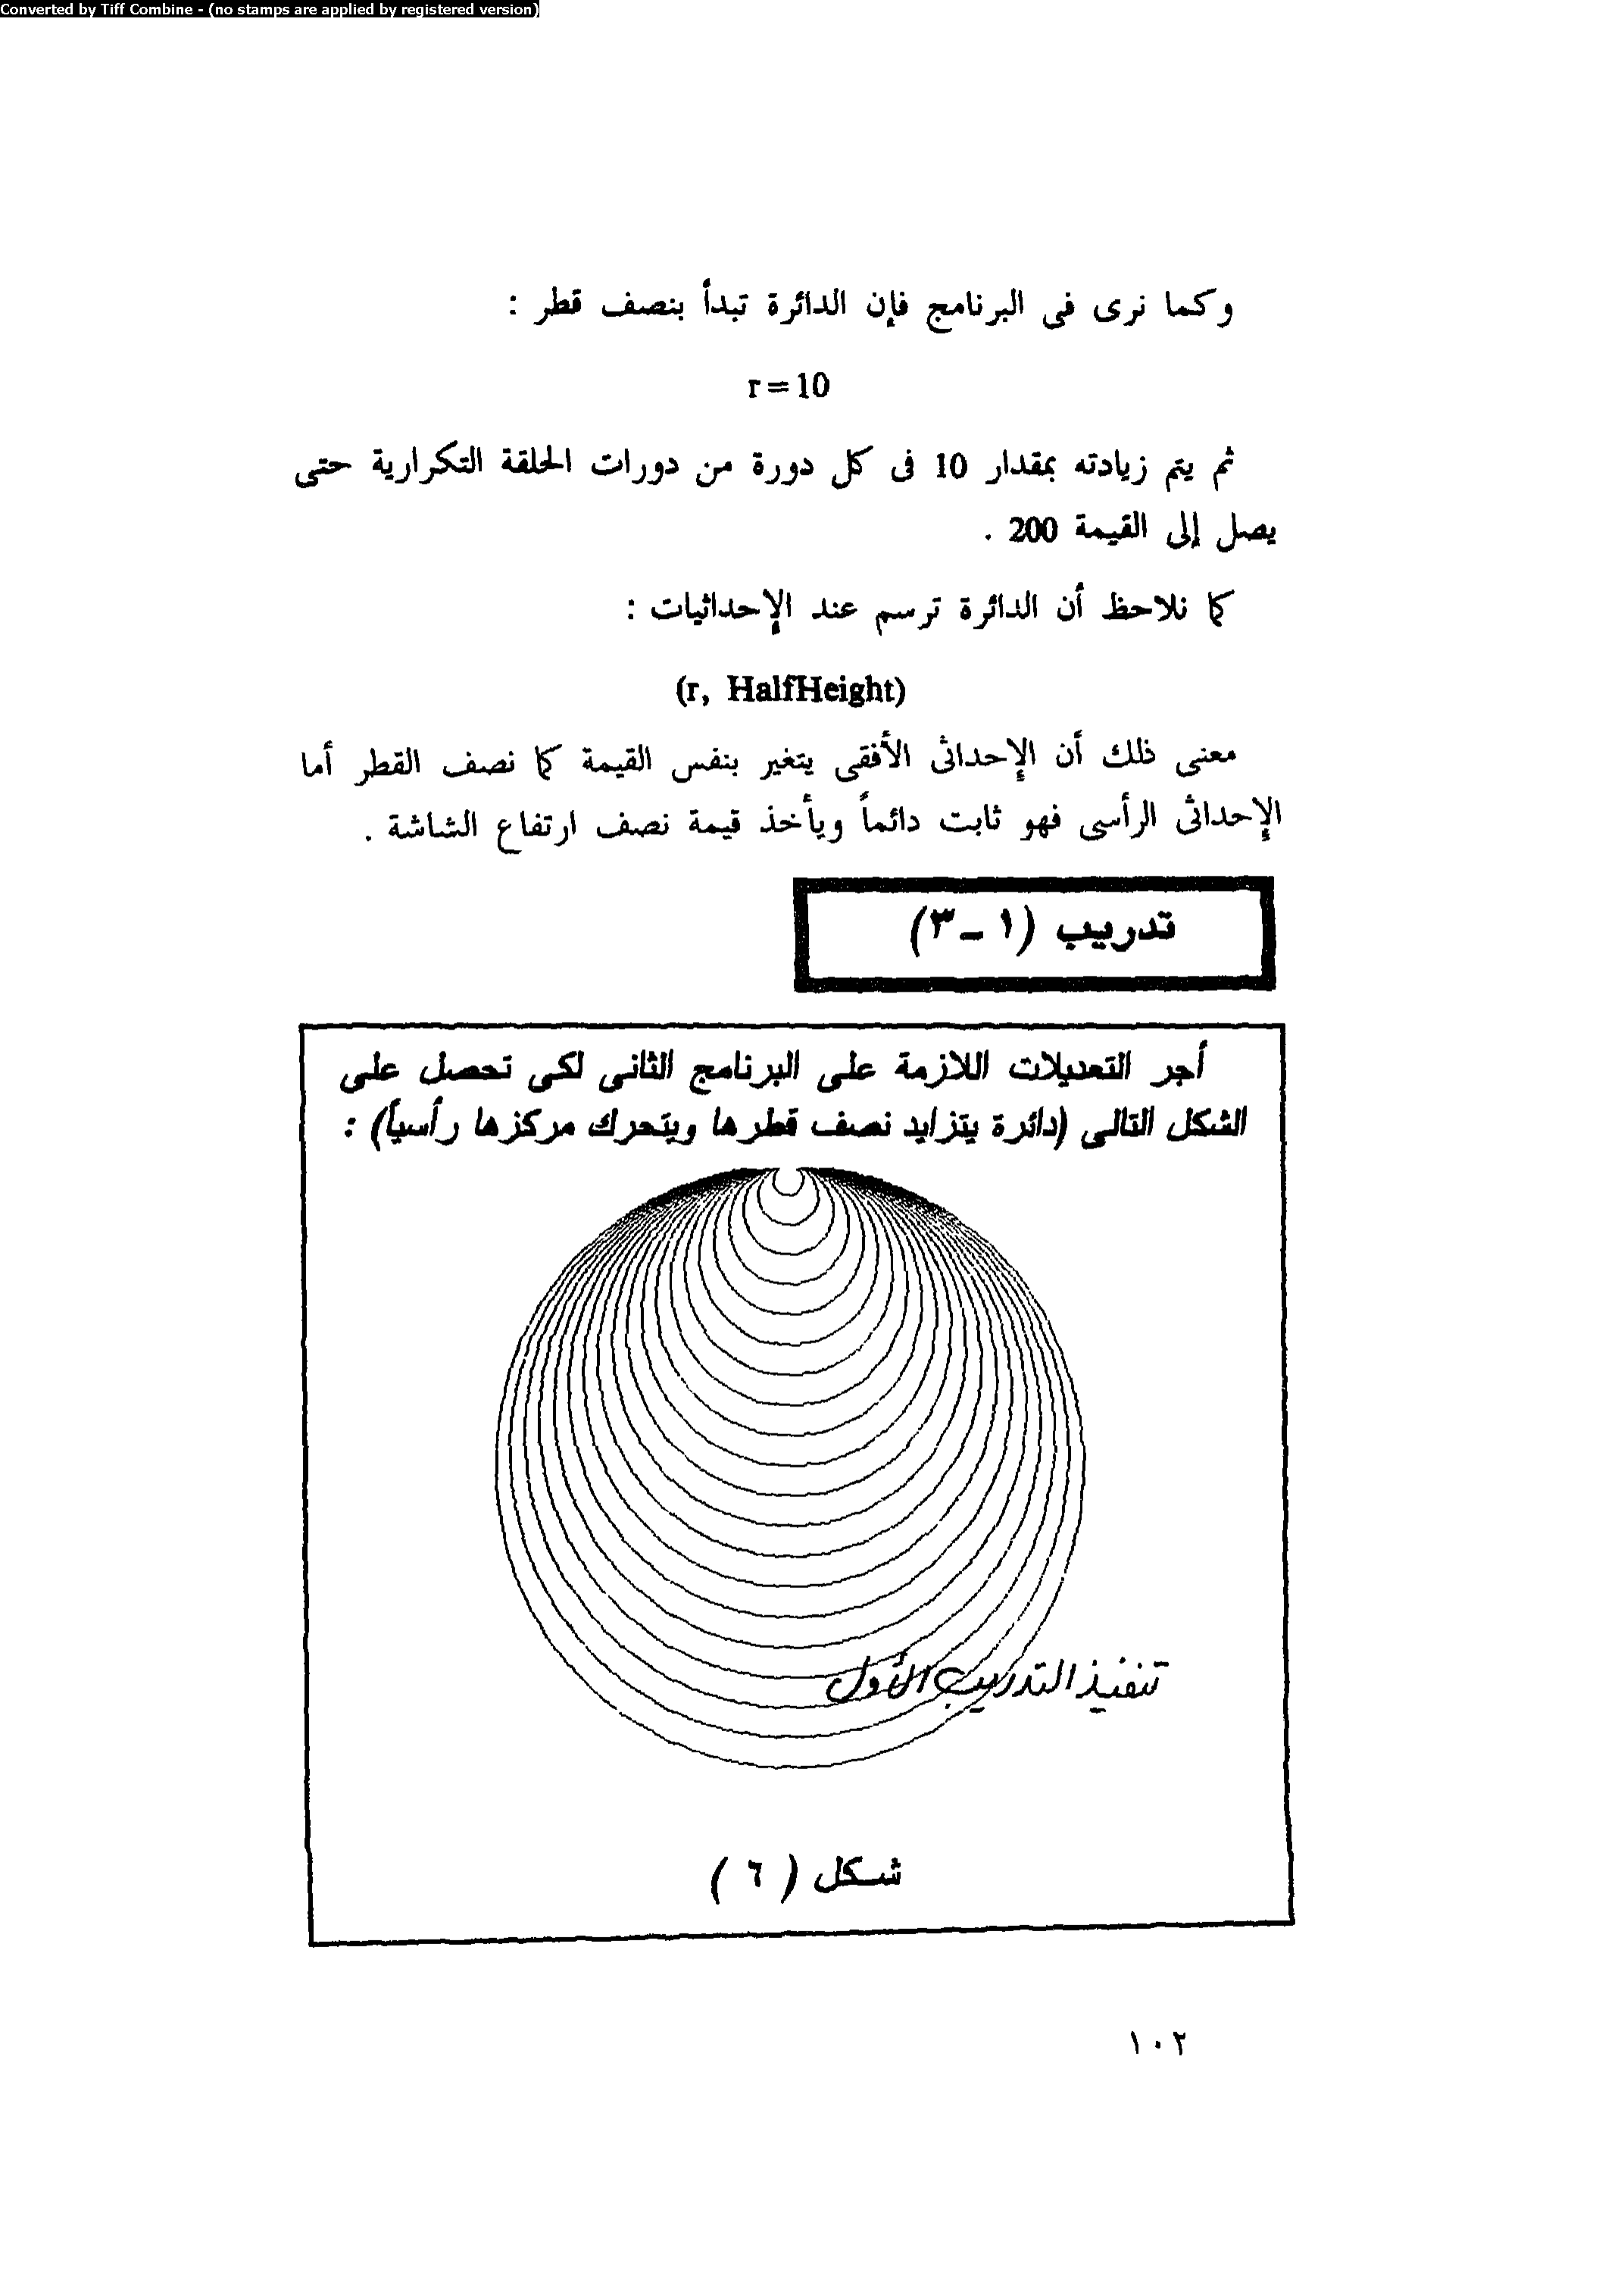 Converted by Tiff Combine - (no stamps are applied by registered version)
وكما نرى فى البرنامج فإن الدائرة تبدأ بنصف قطر :
r = 10
ثم يتم زيادته بمقدار 10 فى كل دورة من دورات الحلقة التكرارية حتى
يصل إلى القيمة 200 .
كما نلاحظ أن الدائرة ترسم عند الإحداثيات :
(r, HalfHeight)
معنى ذلك أن الإحداثى الأفقى يتغير بنفس القيمة كما نصف القطر أما
الإحداثى الرأسى فهو ثابت دائماً ويأخذ قيمة نصف ارتفاع الشاشة .
تدريب (١ – ٣)
أجر التعديلات اللازمة على البرنامج الثانى لكى تحصل على
الشكل التالى (دائرة يتزايد نصف قطرها ويتحرك مركزها رأسياً) :
تنفيذ التدريب الأول
شكل ( ٦ )
١٠٢